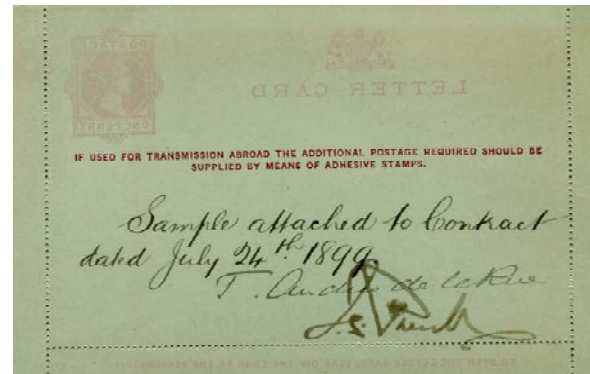 POSTAGE
LETTER CARD
ONE PENNY
IF USED FOR TRANSMISSION ABROAD THE ADDITIONAL POSTAGE REQUIRED SHOULD BE
SUPPLIED BY MEANS OF ADHESIVE STAMPS.
Sample attached to Contract
dated July 24th 1899
T. Andros de la Rue